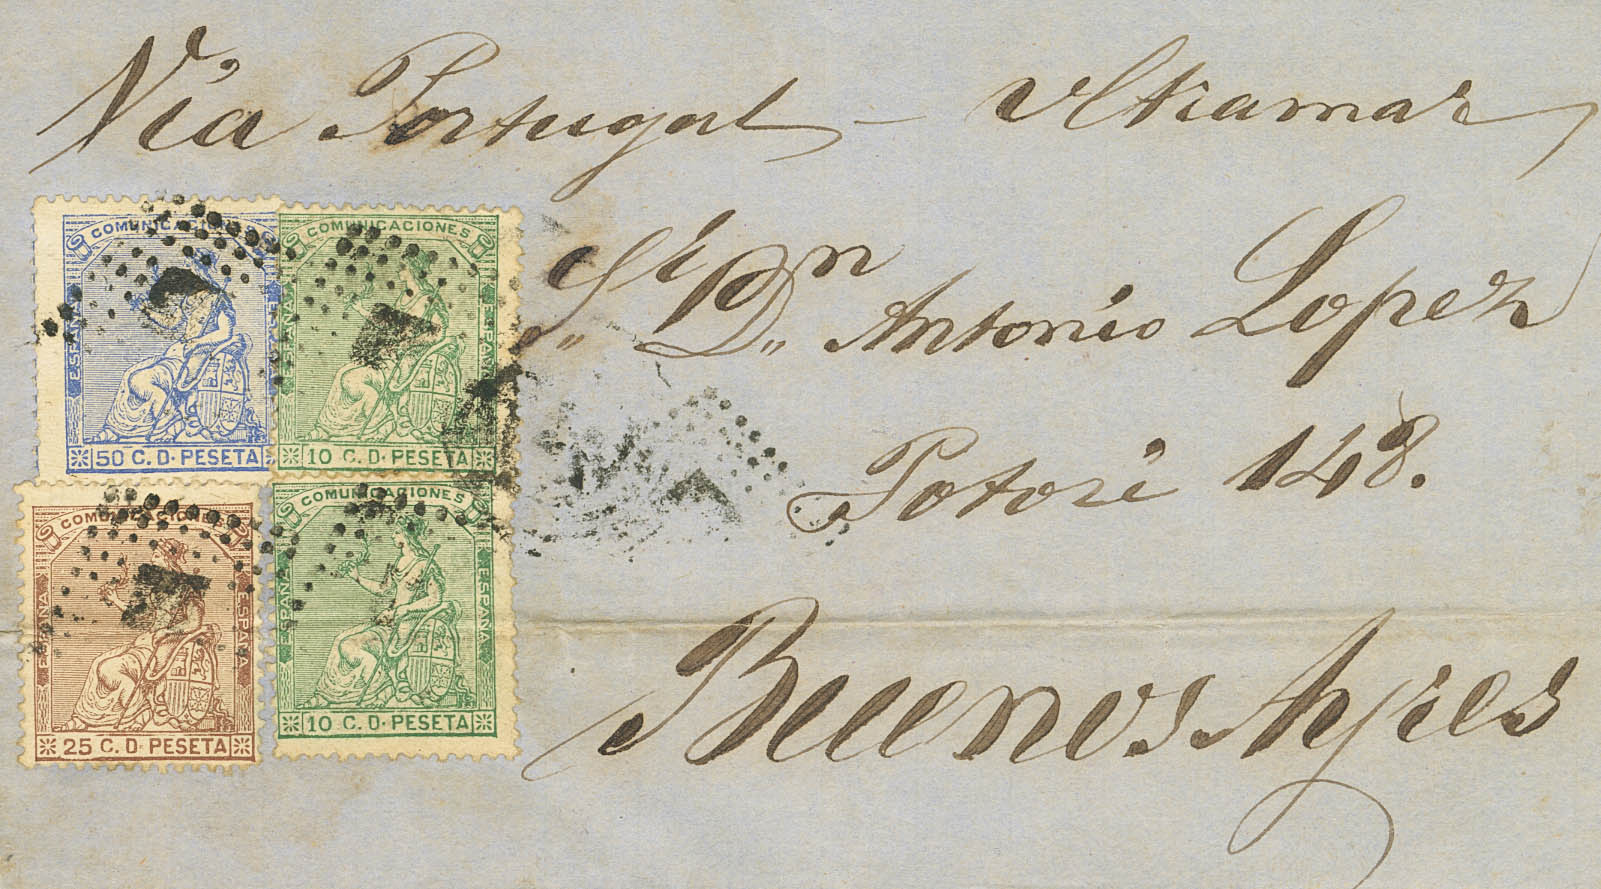 Vía Portugal - Ultramar
Sr. Dn. Antonio Lopez
Potosi 148.
Buenos Ayres
COMUNICACIONES
ESPAÑA
ESPAÑA
50 C. D. PESETA
COMUNICACIONES
ESPAÑA
ESPAÑA
10 C. D. PESETA
COMUNICACIONES
ESPAÑA
ESPAÑA
25 C. D. PESETA
COMUNICACIONES
ESPAÑA
ESPAÑA
10 C. D. PESETA